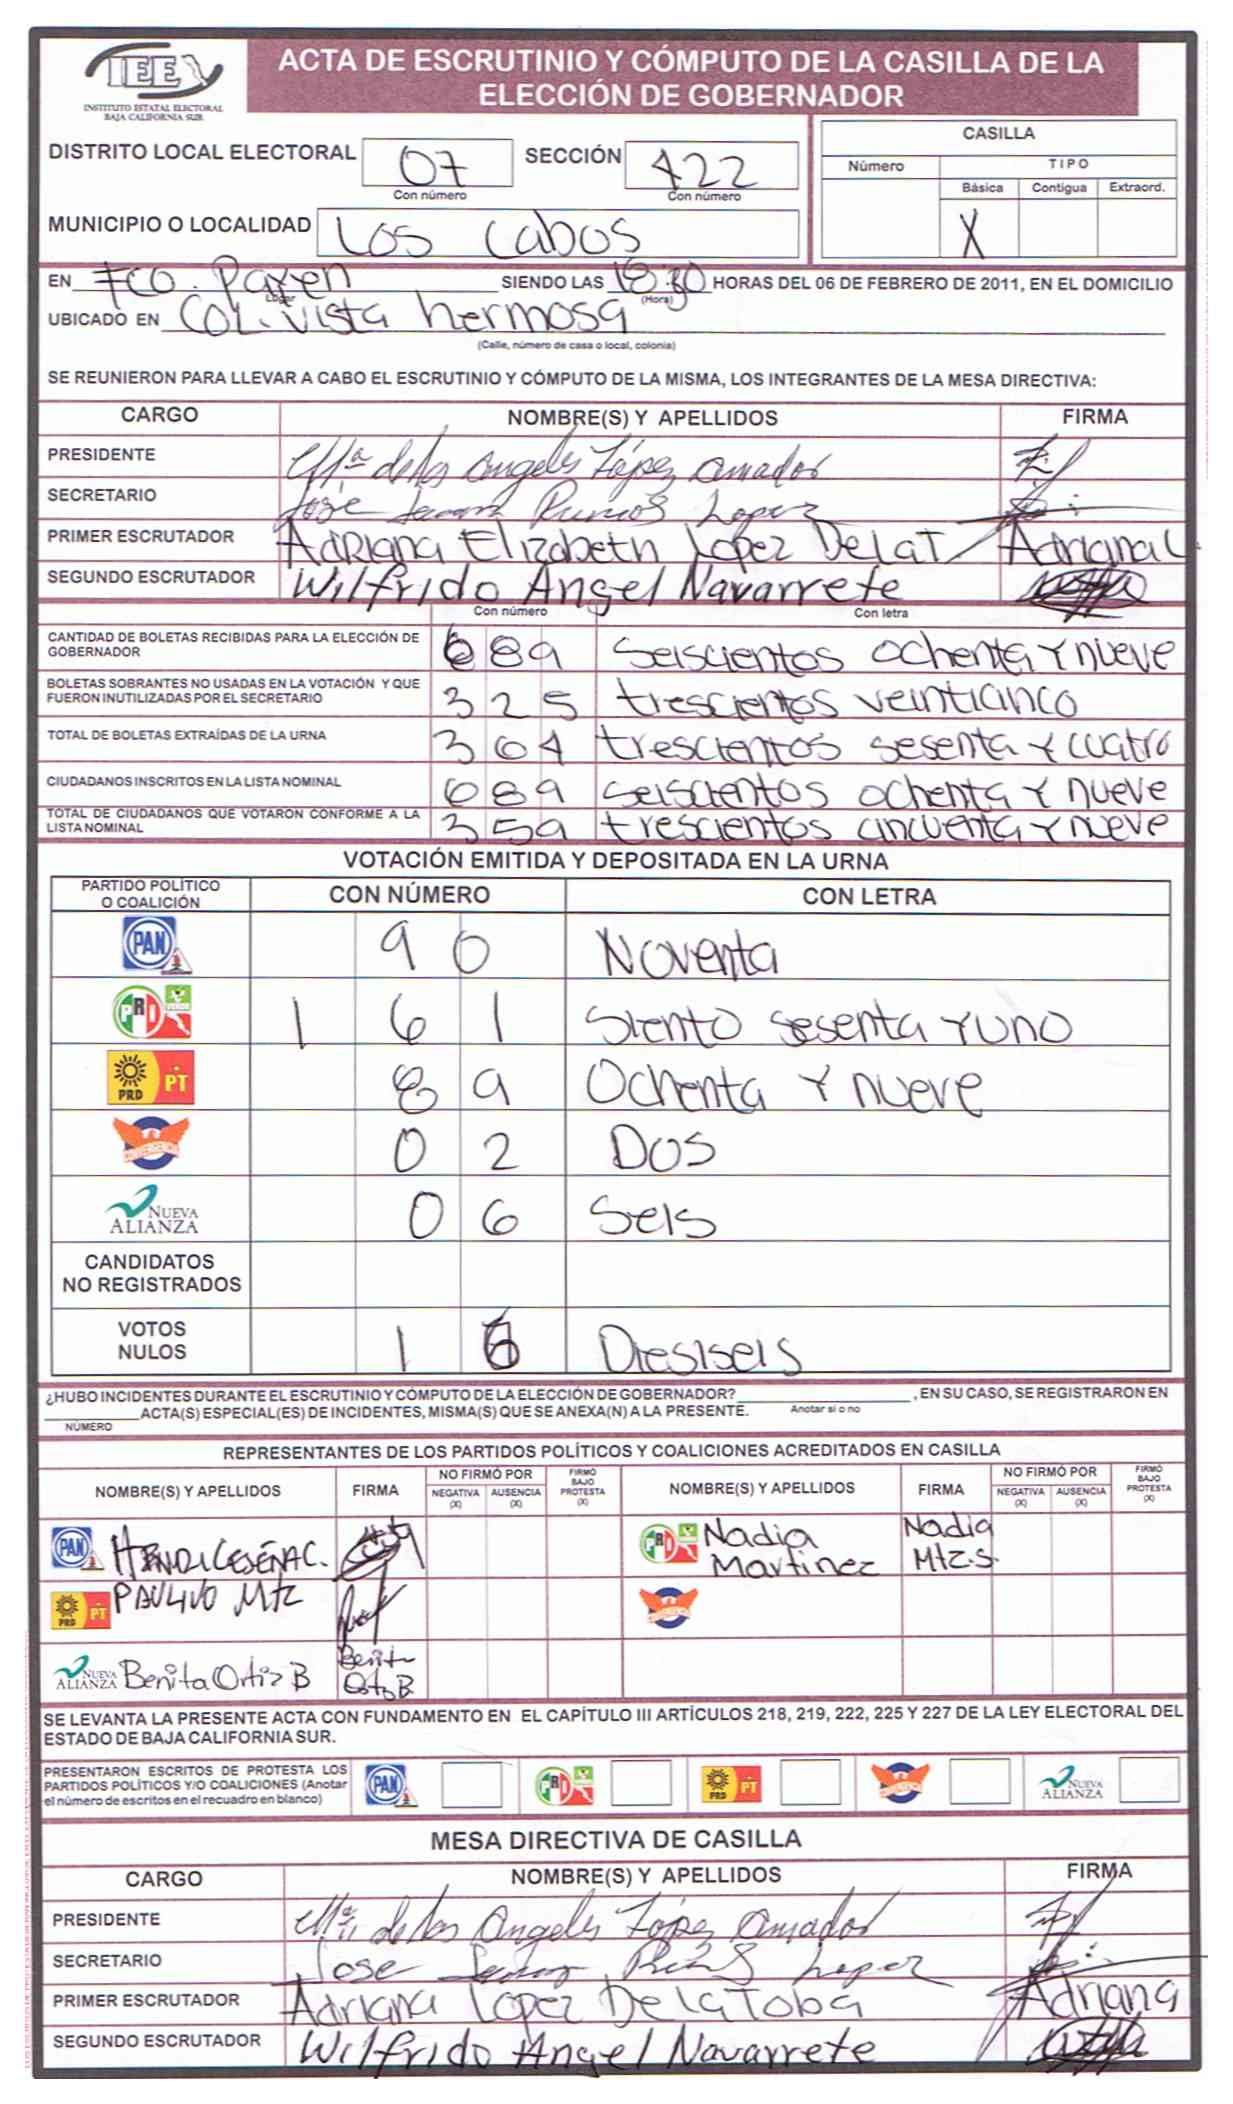 IEE
INSTITUTO ESTATAL ELECTORAL
BAJA CALIFORNIA SUR
ACTA DE ESCRUTINIO Y CÓMPUTO DE LA CASILLA DE LA
ELECCIÓN DE GOBERNADOR
DISTRITO LOCAL ELECTORAL 07 SECCIÓN 422
Con número Con número
CASILLA
Número TIPO
Básica Contigua Extraord.
X
MUNICIPIO O LOCALIDAD Los Cabos
EN Fco. SIENDO LAS 18:30 HORAS DEL 06 DE FEBRERO DE 2011, EN EL DOMICILIO
Lugar (Hora)
UBICADO EN COL. Vista hermosa
(Calle, número de casa o local, colonia)
SE REUNIERON PARA LLEVAR A CABO EL ESCRUTINIO Y CÓMPUTO DE LA MISMA, LOS INTEGRANTES DE LA MESA DIRECTIVA:
CARGO NOMBRE(S) Y APELLIDOS FIRMA
PRESIDENTE Mª de los Angeles López Amador
SECRETARIO José Lopez
PRIMER ESCRUTADOR Adriana Elizabeth Lopez De La T Adriana L
SEGUNDO ESCRUTADOR Wilfrido Angel Navarrete
Con número Con letra
CANTIDAD DE BOLETAS RECIBIDAS PARA LA ELECCIÓN DE
GOBERNADOR 689 Seiscientos ochenta Y nueve
BOLETAS SOBRANTES NO USADAS EN LA VOTACIÓN Y QUE
FUERON INUTILIZADAS POR EL SECRETARIO 325 trescientos veinticinco
TOTAL DE BOLETAS EXTRAÍDAS DE LA URNA 364 trescientos sesenta Y cuatro
CIUDADANOS INSCRITOS EN LA LISTA NOMINAL 689 seiscientos ochenta Y nueve
TOTAL DE CIUDADANOS QUE VOTARON CONFORME A LA
LISTA NOMINAL 359 trescientos cincuenta Y nueve
VOTACIÓN EMITIDA Y DEPOSITADA EN LA URNA
PARTIDO POLÍTICO
O COALICIÓN CON NÚMERO CON LETRA
PAN 90 Noventa
PRI VERDE 161 Siento sesenta Y uno
PRD PT 89 Ochenta Y nueve
CONVERGENCIA 02 Dos
NUEVA ALIANZA 06 Seis
CANDIDATOS
NO REGISTRADOS
VOTOS
NULOS 16 Diesiseis
¿HUBO INCIDENTES DURANTE EL ESCRUTINIO Y CÓMPUTO DE LA ELECCIÓN DE GOBERNADOR? , EN SU CASO, SE REGISTRARON EN
Anotar sí o no
ACTA(S) ESPECIAL(ES) DE INCIDENTES, MISMA(S) QUE SE ANEXA(N) A LA PRESENTE.
NÚMERO
REPRESENTANTES DE LOS PARTIDOS POLÍTICOS Y COALICIONES ACREDITADOS EN CASILLA
NOMBRE(S) Y APELLIDOS FIRMA NO FIRMÓ POR NEGATIVA (X) AUSENCIA (X) FIRMÓ BAJO PROTESTA (X) NOMBRE(S) Y APELLIDOS FIRMA NO FIRMÓ POR NEGATIVA (X) AUSENCIA (X) FIRMÓ BAJO PROTESTA (X)
PAN PRI Nadia Martinez Nadia Mtz. S.
PRD PT PAULINO Mtz CONVERGENCIA
NUEVA ALIANZA Benita Ortiz B Benita Ortiz B.
SE LEVANTA LA PRESENTE ACTA CON FUNDAMENTO EN EL CAPÍTULO III ARTÍCULOS 218, 219, 222, 225 Y 227 DE LA LEY ELECTORAL DEL
ESTADO DE BAJA CALIFORNIA SUR.
PRESENTARON ESCRITOS DE PROTESTA LOS
PARTIDOS POLÍTICOS Y/O COALICIONES (Anotar
el número de escritos en el recuadro en blanco)
PAN PRI PRD PT CONVERGENCIA NUEVA ALIANZA
MESA DIRECTIVA DE CASILLA
CARGO NOMBRE(S) Y APELLIDOS FIRMA
PRESIDENTE Mª de los Angeles López Amador
SECRETARIO Jose Lopez
PRIMER ESCRUTADOR Adriana Lopez De la Toba Adriana
SEGUNDO ESCRUTADOR Wilfrido Angel Navarrete